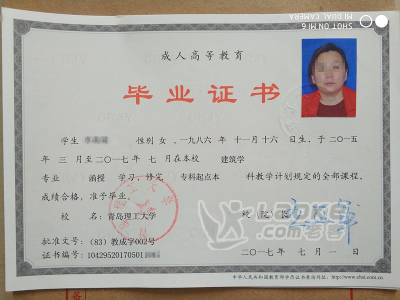 SHOT ON MI 6
MI DUAL CAMERA
成人高等教育
毕业证书
学生 性别 女，一九八六 年十一月十六日生，于二〇一五
年 三 月至二〇一七年 七 月在本校 建筑学
专业 函授 学习，修完 专科起点本 科教学计划规定的全部课程，
成绩合格，准予毕业。
校 名：青岛理工大学 校（院）长：
批准文号：（83）教成字002号
二〇一七年 七 月 一 日
证书编号：10429520170501
中华人民共和国教育部学历证书查询网址：http://www.chsi.com.cn